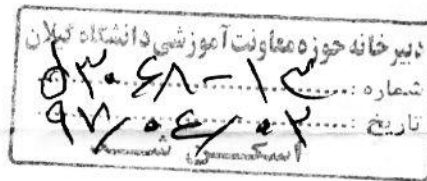 دبیرخانه حوزه معاونت آموزشی دانشگاه گیلان
شماره : ۵۳۰۶۸-۱۳
تاریخ : ۹۷/۰۶/۰۲
اسکن شد